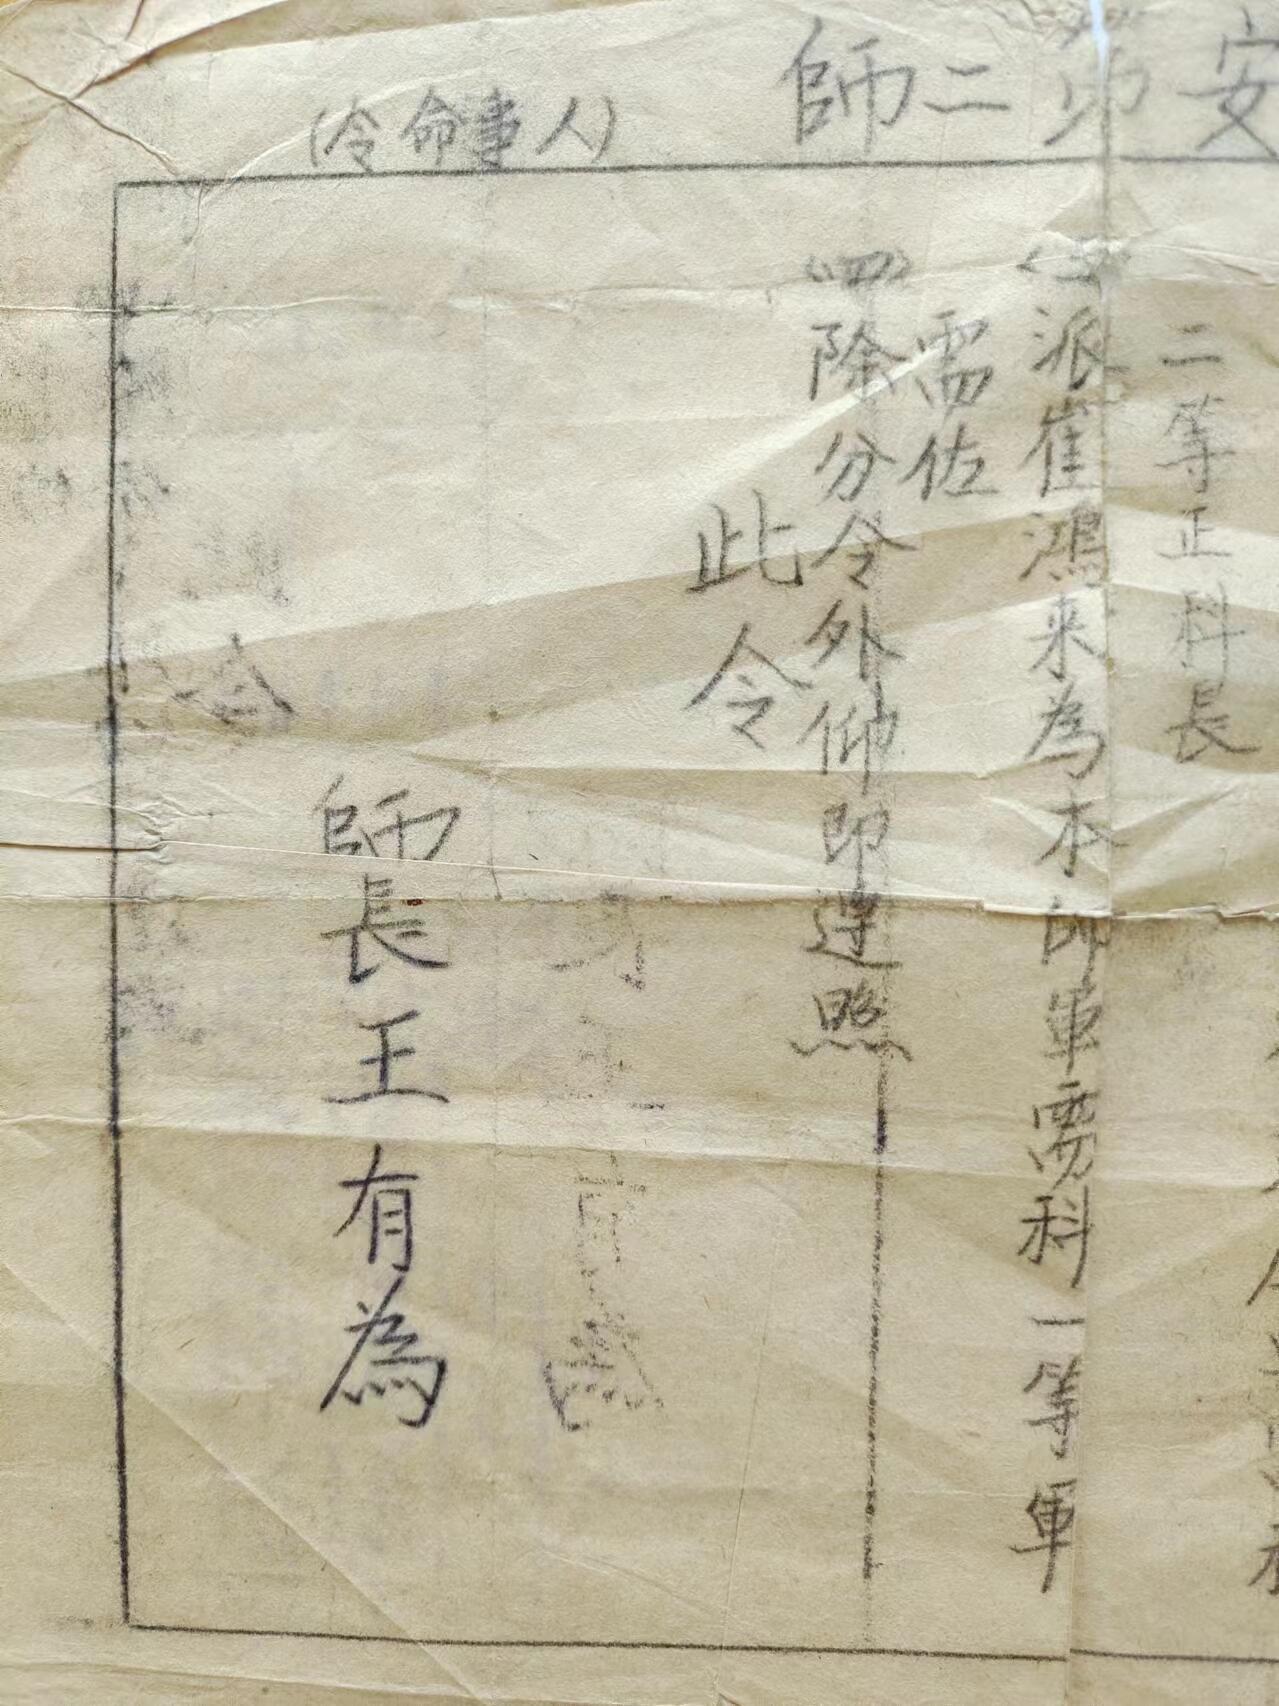 安第二師
(人事命令)
二等正科長
派崔鴻來為本師軍需科一等軍
需佐
〈四〉除分令外仰即遵照
此令
師長王有為